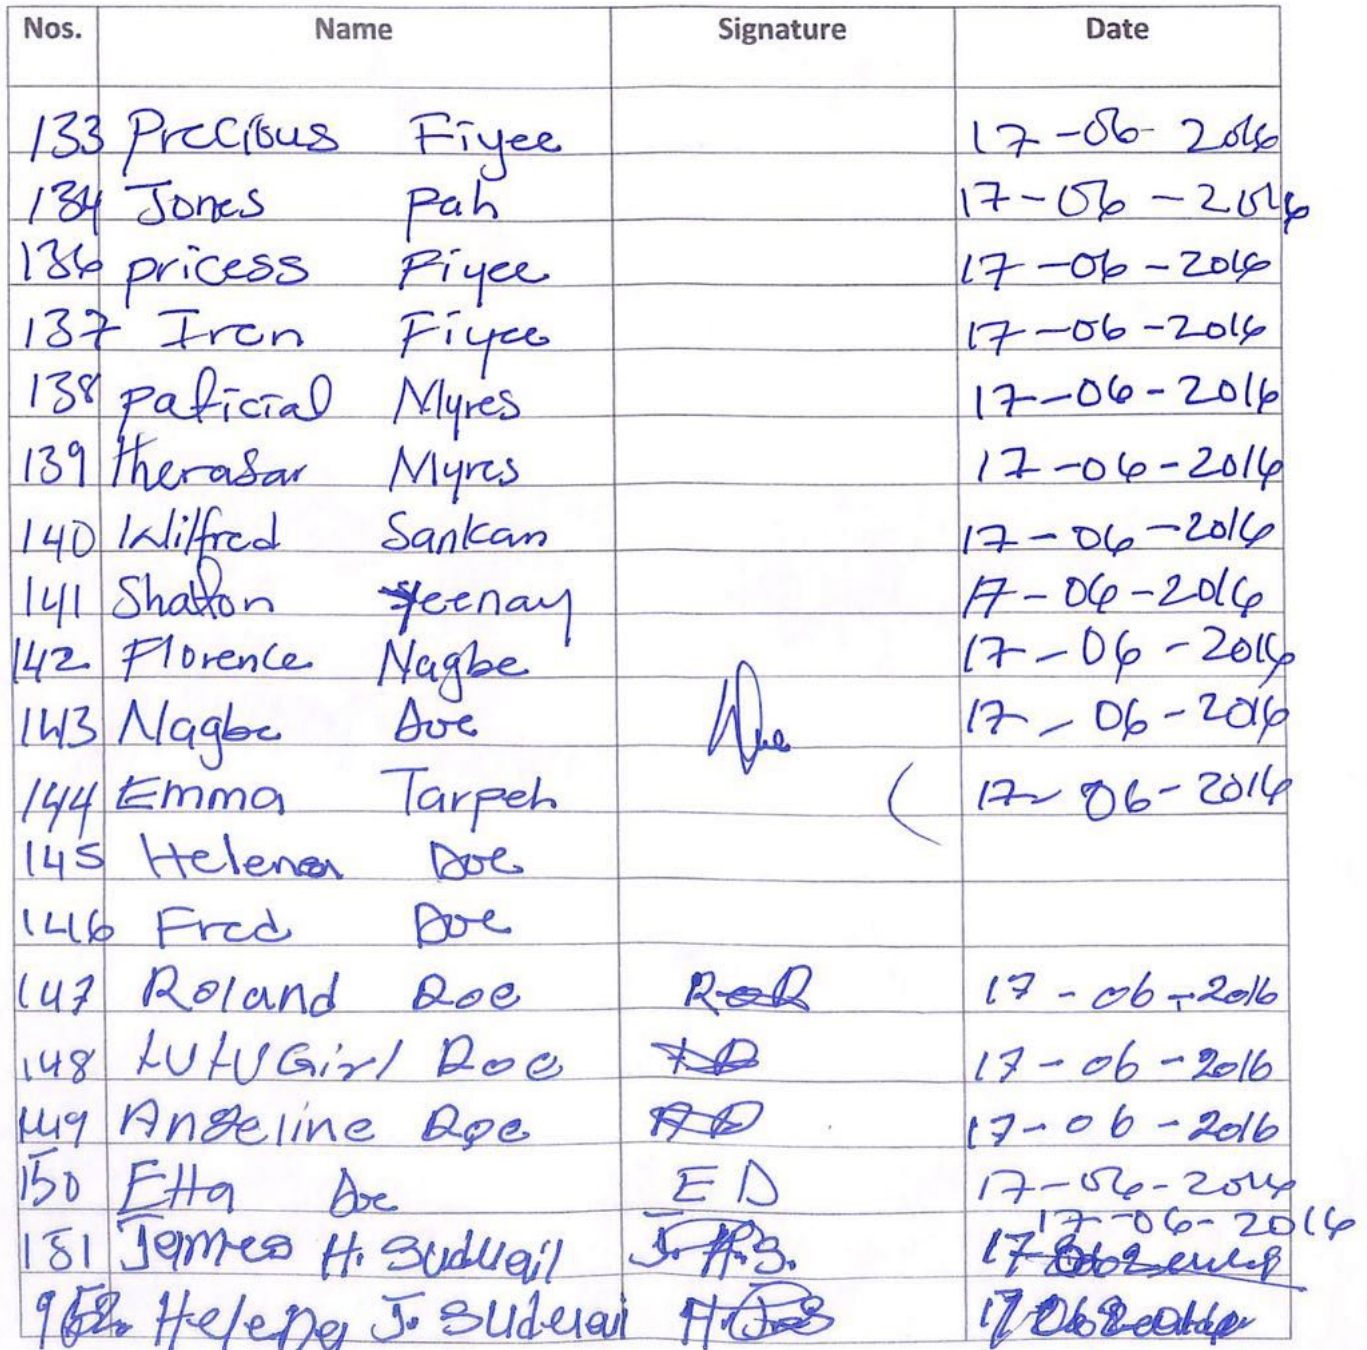 Nos. Name Signature Date
133 Precious Fiyee 17-06-2016
134 Jones Pah 17-06-2016
136 pricess Fiyee 17-06-2016
137 Iren Fiyee 17-06-2016
138 paticial Myres 17-06-2016
139 therasar Myres 17-06-2016
140 Wilfred Sankan 17-06-2016
141 Yeenay 17-06-2016
142 Florence Nagbe 17-06-2016
143 Nagbe Doe 17-06-2016
144 Emma Tarpeh 17-06-2016
145 Helena Doe
146 Fred Doe
147 Roland Doe RoD 17-06-2016
148 tUtUGirl Doe 17-06-2016
149 Angeline Doe AD 17-06-2016
150 Etta Doe ED 17-06-2016
17-06-2016
151 James H. J.H.S. 17
Helena J.